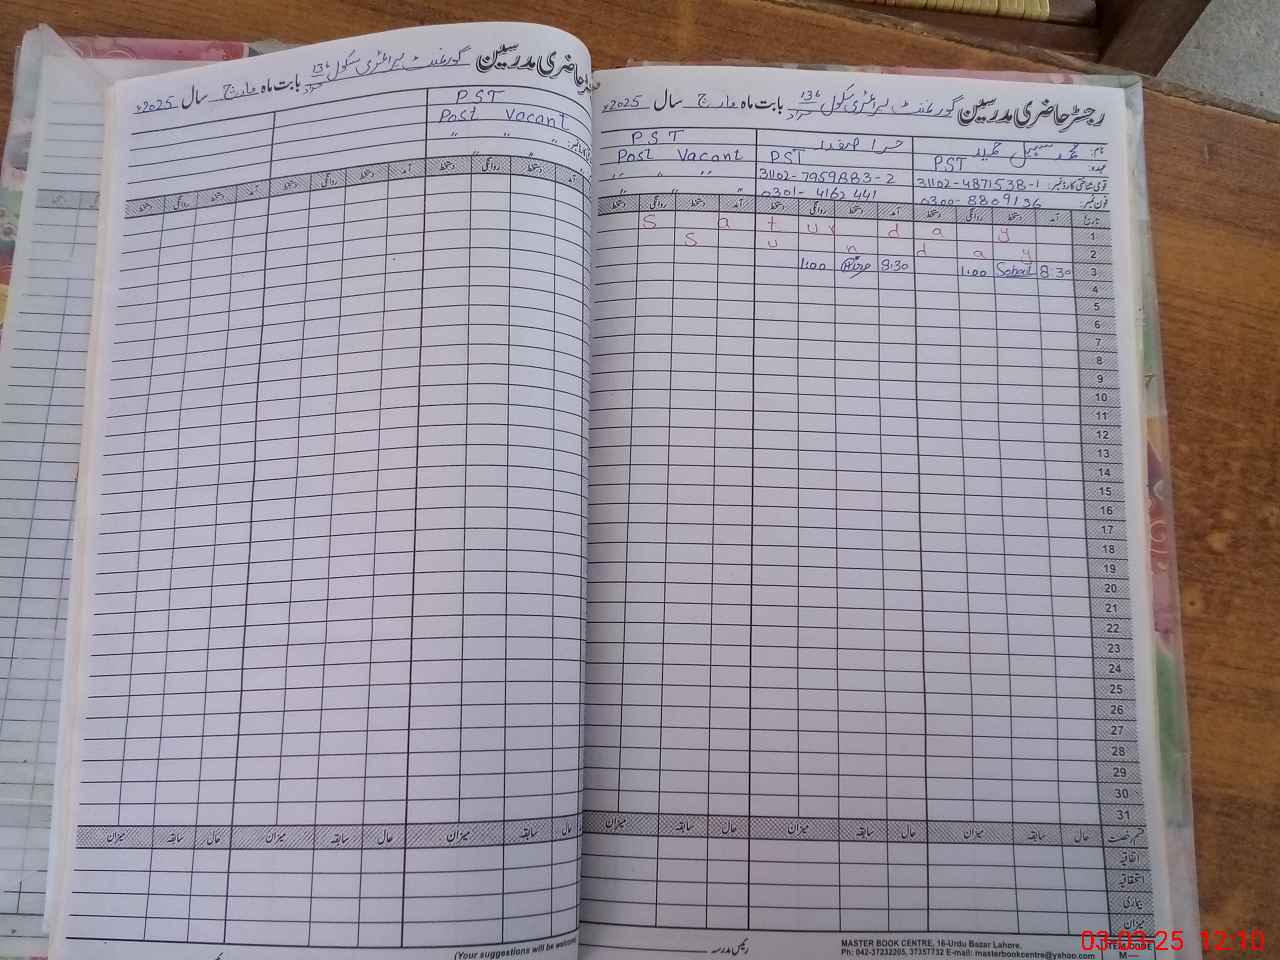 رجسٹر حاضری مدرسین گورنمنٹ پرائمری سکول 136 مراد بابت ماہ مارچ سال 2025ء
نام: محمد سہیل حمید حرا صفدر PST
عہدہ: PST PST Post Vacant
قومی شناختی کارڈ نمبر: 31102-4871538-1 31102-7959883-2 〃 〃 〃
فون نمبر: 0300-8809136 0301-4162441 〃 〃 〃
تاریخ آمد دستخط روانگی دستخط آمد دستخط روانگی دستخط آمد دستخط روانگی دستخط
1 S a t u r d a y
2 S u n d a y
3 8:30 Sohail 1:00 8:30 1:00
4
5
6
7
8
9
10
11
12
13
14
15
16
17
18
19
20
21
22
23
24
25
26
27
28
29
30
31
قسم رخصت حال سابقہ میزان حال سابقہ میزان حال سابقہ میزان
اتفاقیہ
استحقاقیہ
بیماری
میزان
رئیس مدرسہ
MASTER BOOK CENTRE, 16-Urdu Bazar Lahore.
Ph: 042-37232205, 37357732 E-mail: masterbookcentre@yahoo.com
ITEM CODE
M—
حاضری مدرسین گورنمنٹ پرائمری سکول 136 مراد بابت ماہ مارچ سال 2025ء
PST
Post Vacant
〃 〃 〃
آمد دستخط روانگی دستخط آمد دستخط روانگی دستخط آمد دستخط روانگی دستخط
حال سابقہ میزان حال سابقہ میزان حال سابقہ میزان
(Your suggestions will be welcome
03-03-25 12:10